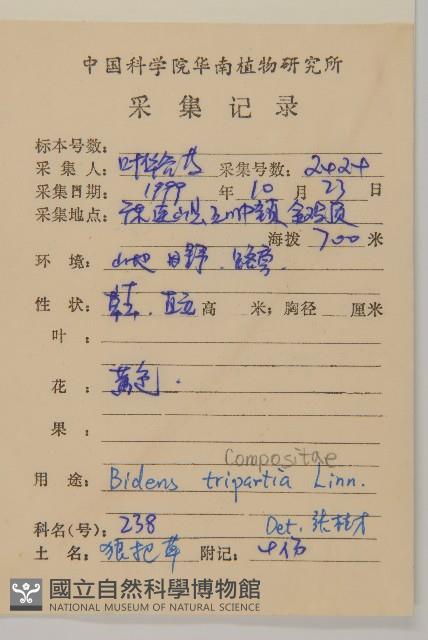 中国科学院华南植物研究所
采集记录
标本号数：
采集人：叶华谷 采集号数：2424
采集日期：1999年10月23日
采集地点：连山县 镇
海拔 700 米
环境：山地 田野．路旁．
性状：草．直立 高 米；胸径 厘米
叶：
花：黄色．
果：
Compositae
用途：Bidens tripartia Linn.
科名(号)：238 Det. 张桂才
土名：狼把草 附记：4份
國立自然科學博物館
NATIONAL MUSEUM OF NATURAL SCIENCE